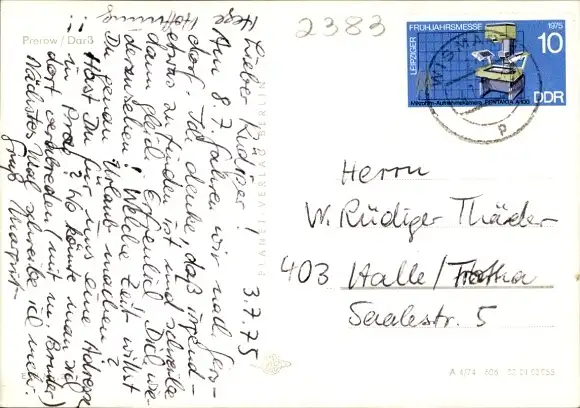 Prerow / Darß
2383
LEIPZIGER
FRÜHJAHRSMESSE
1975
10
DDR
Mikrofilm-Aufnahmekamera PENTAKTA A 100
WISMAR
p
Lieber Rüdiger! 3.7.75
Am 8.7. fahren wir nach Geis-
dorf. Ich denke, daß irgend-
etwas zu finden ist und schreibe
dann gleich. Erfreulich, Dich wie-
derzusehen! Welche Zeit willst
Du genau Urlaub machen?
Hast Du für uns eine Adresse
in Prag? Wo könnte man sich
dort verabreden (mit m. Bruder)
Nächstes Mal schreibe ich mehr.
Gruß Margrit
Hoffnung
!!
Herrn
W. Rüdiger Thäder
403 Halle/Trotha
Saalestr. 5
PLANET-VERLAG BERLIN